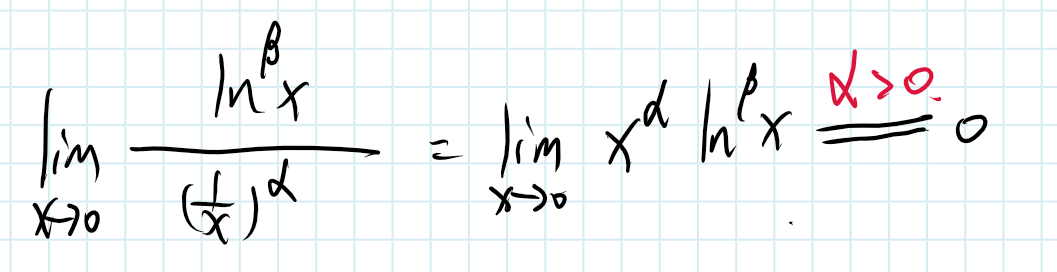 lim x→0 ln^β x / (1/x)^α = lim x→0 x^α ln^β x =(α>0.) 0